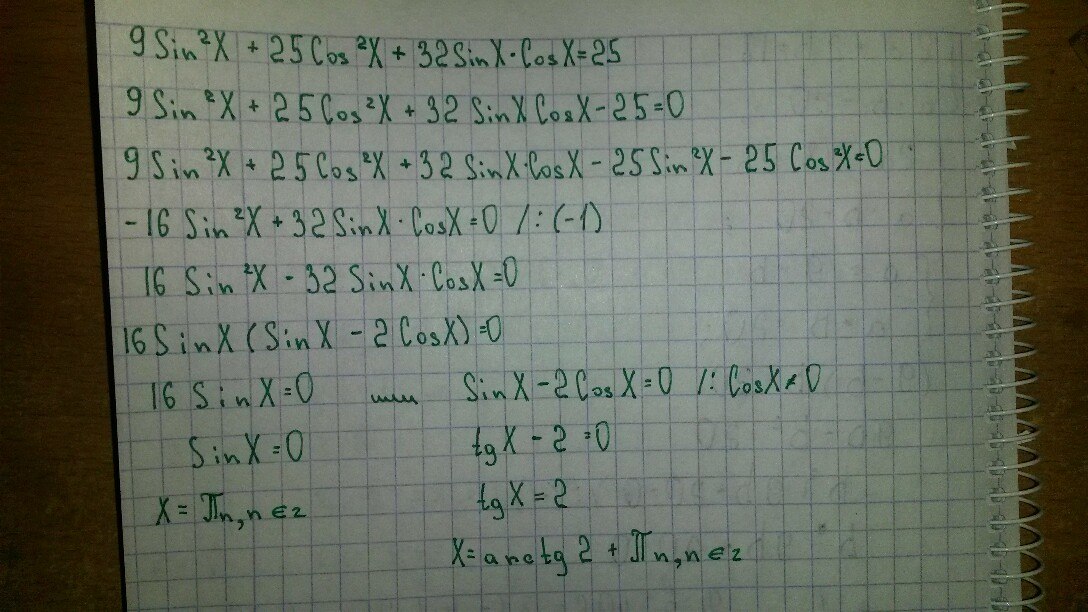 9 Sin²X + 25 Cos²X + 32 SinX·CosX=25
9 Sin²X + 25 Cos²X + 32 SinX CosX - 25=0
9 Sin²X + 25 Cos²X + 32 SinX·CosX - 25 Sin²X - 25 Cos²X=0
-16 Sin²X + 32 SinX·CosX=0 /:(-1)
16 Sin²X - 32 SinX·CosX=0
16 SinX (SinX - 2 CosX)=0
16 SinX=0 или SinX - 2 CosX=0 /: CosX≠0
SinX=0 tgX - 2=0
X= πn, n∈z tgX=2
X= arctg 2 + πn, n∈z